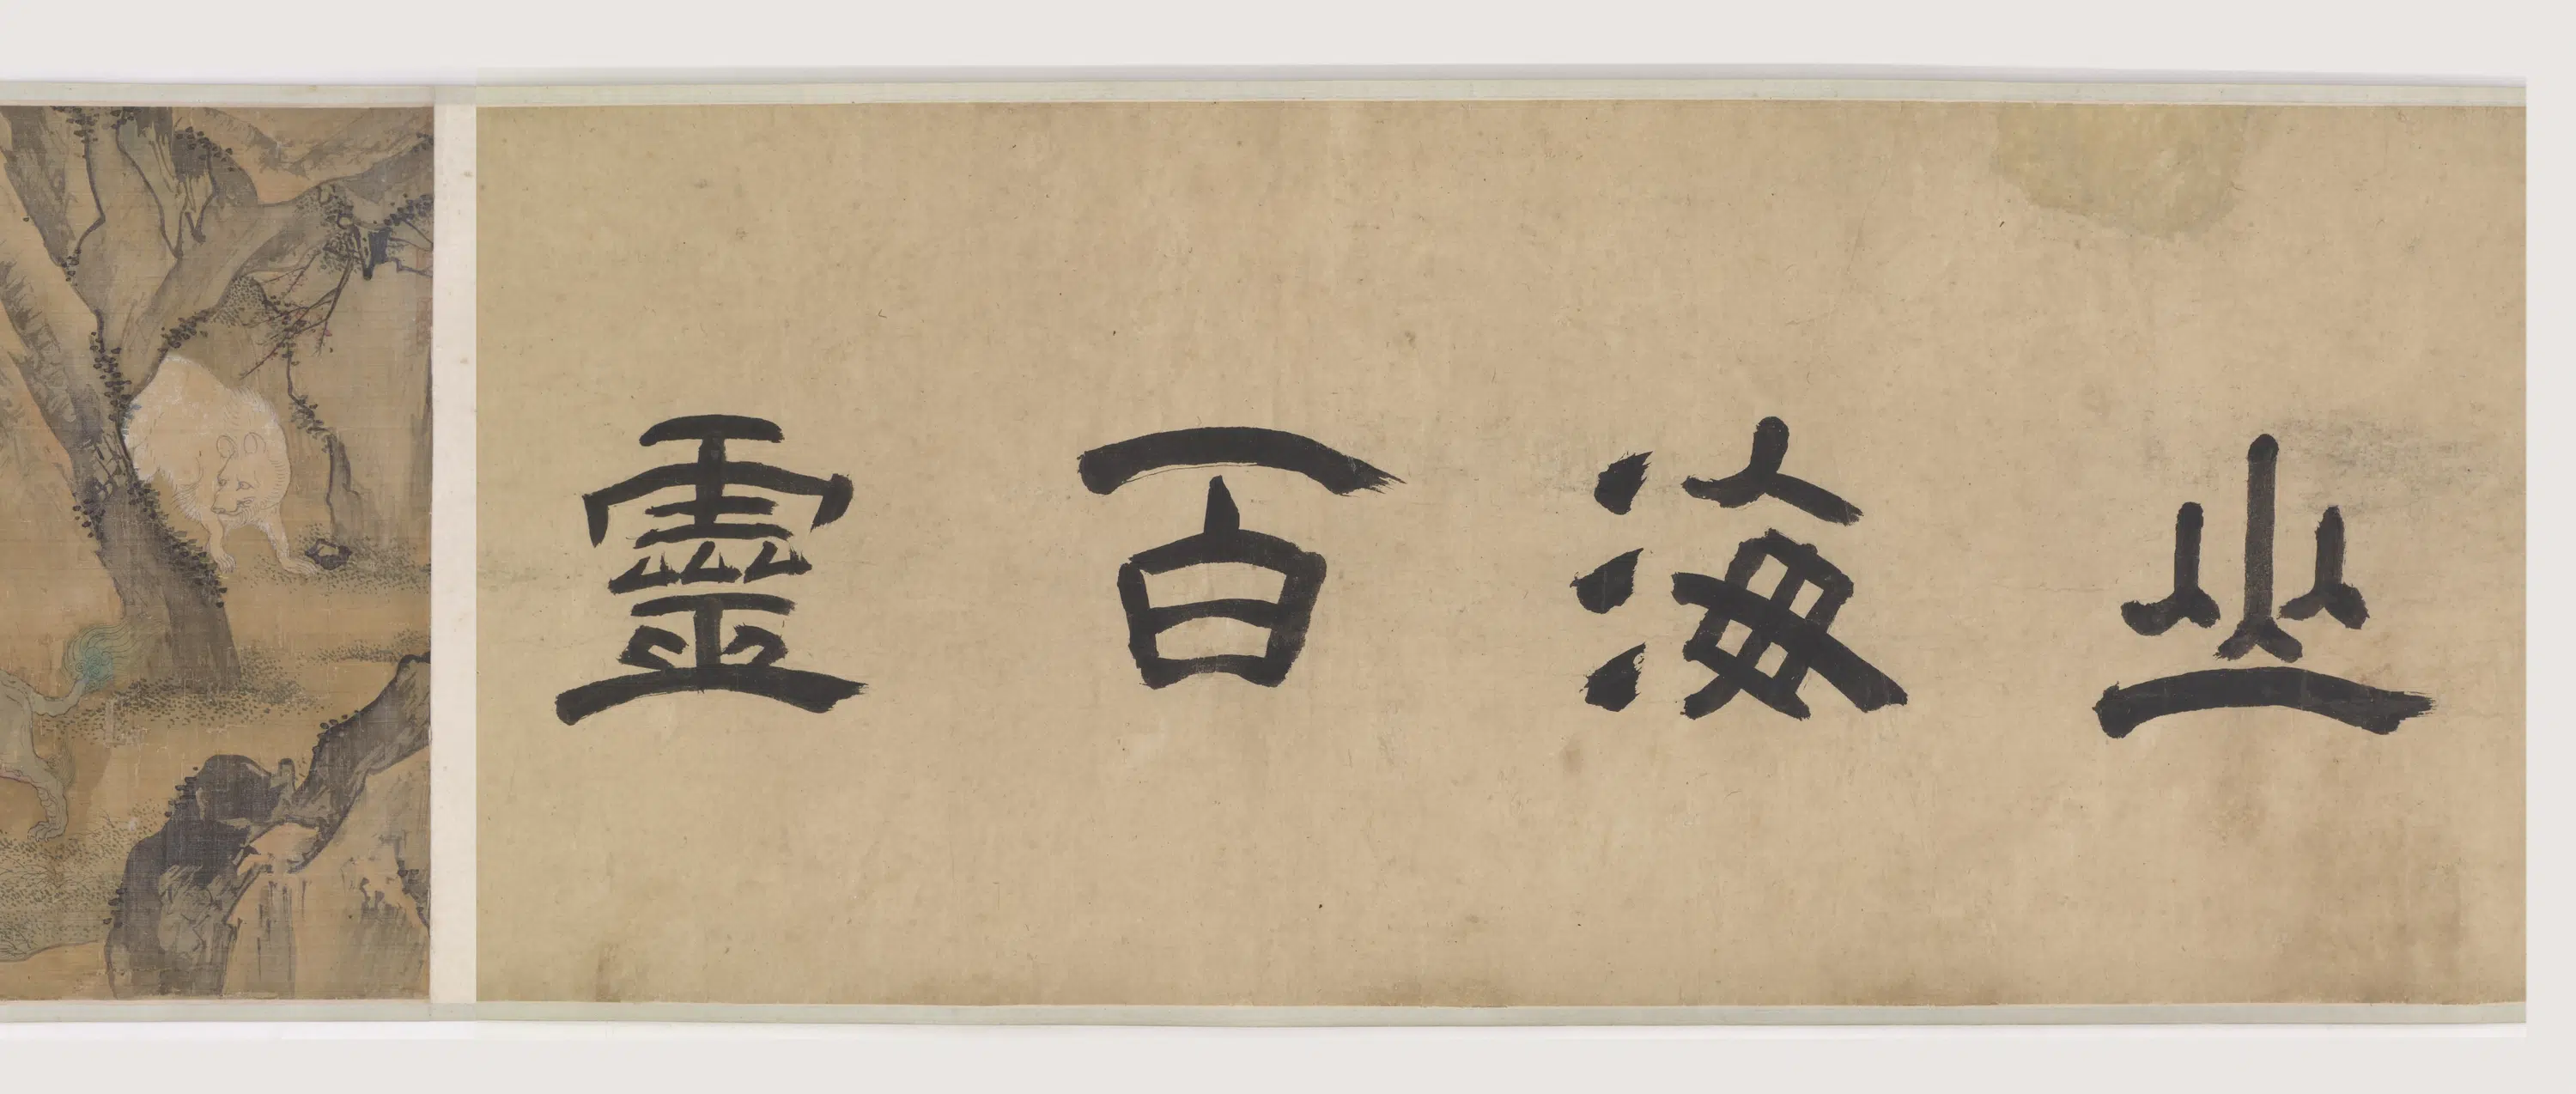 山海百靈